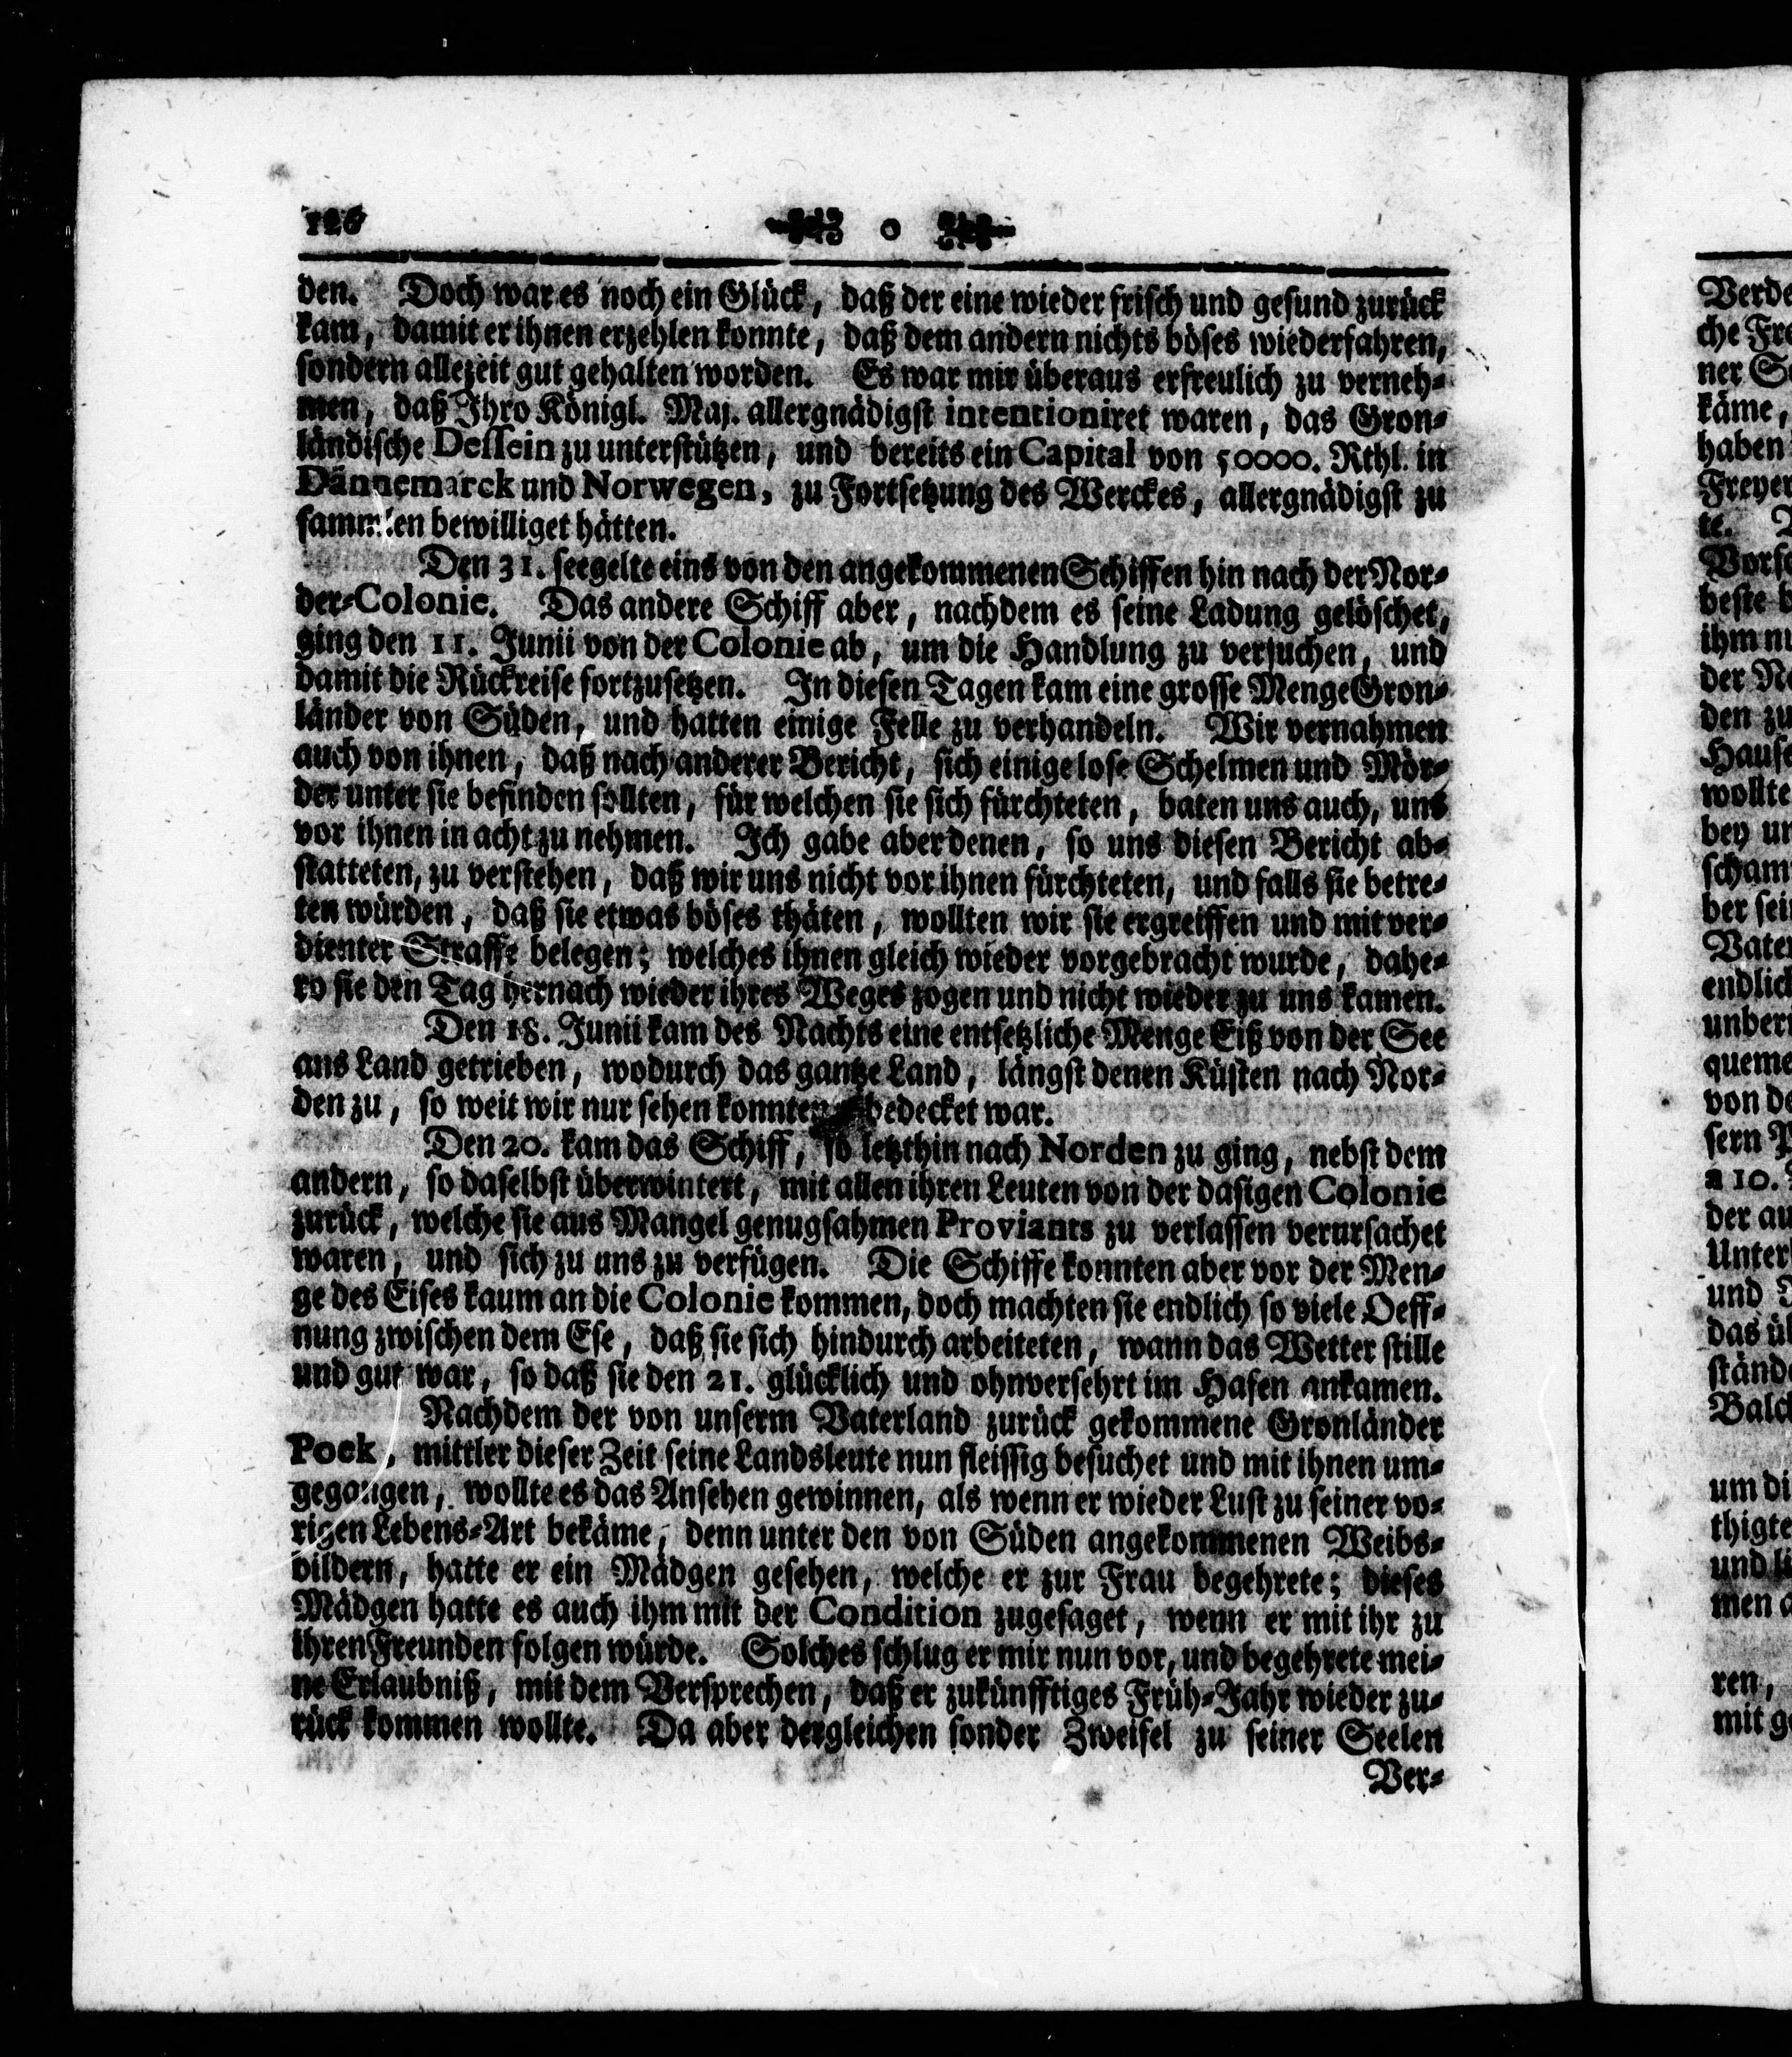 126 o
den. Doch war es noch ein Glück, daß der eine wieder frisch und gesund zurück
kam, damit er ihnen erzehlen konnte, daß dem andern nichts böses wiederfahren,
sondern allezeit gut gehalten worden. Es war mir überaus erfreulich zu verneh-
men, daß Ihro Königl. Maj. allergnädigst intentioniret waren, das Gron-
ländische Dessein zu unterstützen, und bereits ein Capital von 50000. Rthl. in
Dännemarck und Norwegen, zu Fortsetzung des Werckes, allergnädigst zu
sammlen bewilliget hätten.
Den 31. seegelte eins von den angekommenen Schiffen hin nach der Nor-
der-Colonie. Das andere Schiff aber, nachdem es seine Ladung gelöschet,
ging den 11. Junii von der Colonie ab, um die Handlung zu versuchen, und
damit die Rückreise fortzusetzen. In diesen Tagen kam eine grosse Menge Gron-
länder von Süden, und hatten einige Felle zu verhandeln. Wir vernahmen
auch von ihnen, daß nach anderer Bericht, sich einige lose Schelmen und Mör-
der unter sie befinden sollten, für welchen sie sich fürchteten, baten uns auch, uns
vor ihnen in acht zu nehmen. Ich gabe aber denen, so uns diesen Bericht ab-
statteten, zu verstehen, daß wir uns nicht vor ihnen fürchteten, und falls sie betre-
ten würden, daß sie etwas böses thäten, wollten wir sie ergreiffen und mit ver-
dienter Straffe belegen; welches ihnen gleich wieder vorgebracht wurde, dahe-
ro sie den Tag hernach wieder ihres Weges zogen und nicht wieder zu uns kamen.
Den 18. Junii kam des Nachts eine entsetzliche Menge Eiß von der See
ans Land getrieben, wodurch das gantze Land, längst denen Küsten nach Nor-
den zu, so weit wir nur sehen konnten bedecket war.
Den 20. kam das Schiff, so letzthin nach Norden zu ging, nebst dem
andern, so daselbst überwintert, mit allen ihren Leuten von der dasigen Colonie
zurück, welche sie aus Mangel genugsahmen Proviants zu verlassen verursachet
waren, und sich zu uns zu verfügen. Die Schiffe konnten aber vor der Men-
ge des Eises kaum an die Colonie kommen, doch machten sie endlich so viele Oeff-
nung zwischen dem Ese, daß sie sich hindurch arbeiteten, wann das Wetter stille
und gut war, so daß sie den 21. glücklich und ohnversehrt im Hafen ankamen.
Nachdem der von unserm Vaterland zurück gekommene Gronländer
Pock, mittler dieser Zeit seine Landsleute nun fleissig besuchet und mit ihnen um-
gegangen, wollte es das Ansehen gewinnen, als wenn er wieder Lust zu seiner vo-
rigen Lebens-Art bekäme, denn unter den von Süden angekommenen Weibs-
bildern, hatte er ein Mädgen gesehen, welche er zur Frau begehrete; dieses
Mädgen hatte es auch ihm mit der Condition zugesaget, wenn er mit ihr zu
ihren Freunden folgen würde. Solches schlug er mir nun vor, und begehrete mei-
ne Erlaubniß, mit dem Versprechen, daß er zukünfftiges Früh-Jahr wieder zu-
rück kommen wollte. Da aber dergleichen sonder Zweifel zu seiner Seelen
Ver-